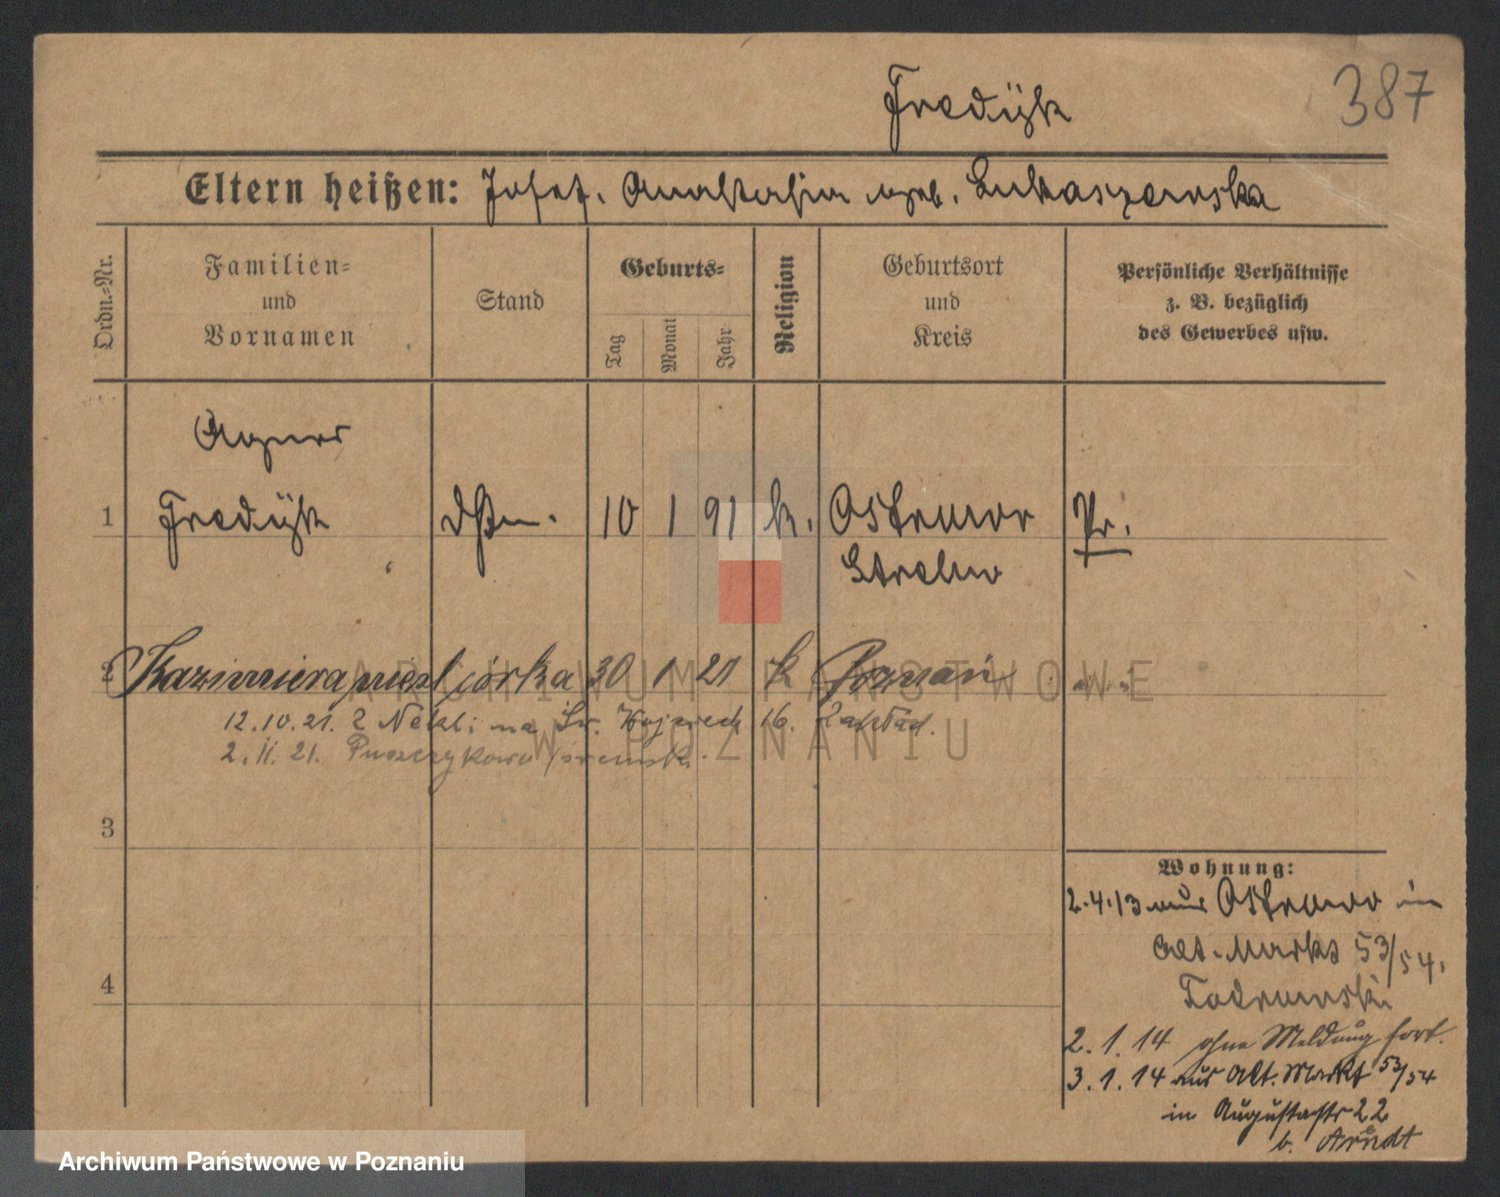 Fredÿk
387
Eltern heißen: Josef. Anastasia geb. Lukaszewska
Ordn.=Nr.
Familien=
und
Vornamen
Stand
Geburts=
Tag
Monat
Jahr
Religion
Geburtsort
und
Kreis
Persönliche Verhältnisse
z. B. bezüglich
des Gewerbes usw.
Agnes
1 Fredÿk 10 1 91 k. Ostrowo Pr.
Strelno
2 Kazimiera córka 30 1 21 k Poznań
12.10.21. z Nekli na Św. Wojciech 16.
2.11.21. Puszczykowo
3
4
Wohnung:
2.4.13 aus Ostrowo in
Alt. Markt 53/54.
2.1.14 ohne Meldung fort.
3.1.14 aus Alt. Markt 53/54
in Augustastr 22
b. Arndt
ARCHIWUM PAŃSTWOWE
W POZNANIU
Archiwum Państwowe w Poznaniu